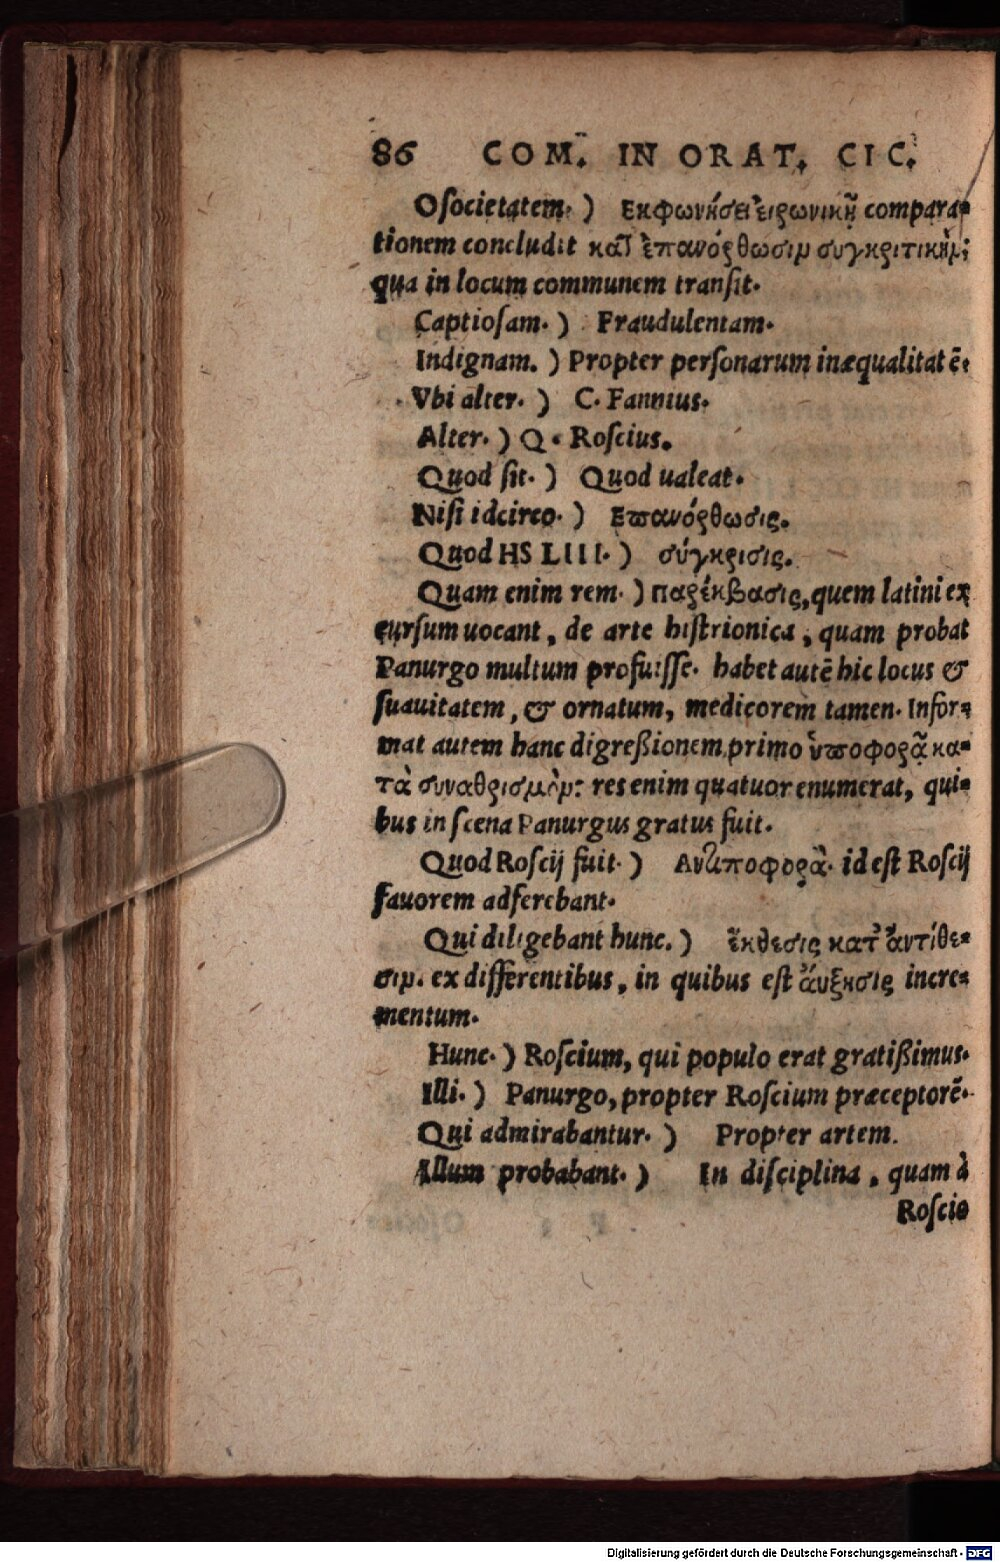 86 COM. IN ORAT. CIC.
O societatem. ) Εκφωνήσει εἰρωνικῇ compara-
tionem concludit κατ' ἐπανόρθωσιμ συγκριτικὴμ;
qua in locum communem transit.
Captiosam. ) Fraudulentam.
Indignam. ) Propter personarum inæqualitatē.
Vbi alter. ) C. Fannius.
Alter. ) Q. Roscius.
Quod sit. ) Quod ualeat.
Nisi idcirco. ) Επανόρθωσις.
Quod HS LIII. ) σύγκρισις.
Quam enim rem. ) παρέκβασις, quem latini ex
cursum uocant, de arte histrionica, quam probat
Panurgo multum profuisse. habet autē hic locus &
suauitatem, & ornatum, medicorem tamen. Infor-
mat autem hanc digreßionem primo ὑποφορᾷ κα-
τὰ συναθρισμὸμ: res enim quatuor enumerat, qui-
bus in scena Panurgus gratus fuit.
Quod Roscij fuit. ) Ανταποφορὰ. id est Roscij
fauorem adferebant.
Qui diligebant hunc. ) ἔκθεσις κατ' ἀντίθε-
σιμ. ex differentibus, in quibus est ἄυξησις incre-
mentum.
Hunc. ) Roscium, qui populo erat gratißimus.
Illi. ) Panurgo, propter Roscium præceptorē.
Qui admirabantur. ) Propter artem.
Illum probabant. ) In disciplina, quam à
Roscio
Digitalisierung gefördert durch die Deutsche Forschungsgemeinschaft - DFG